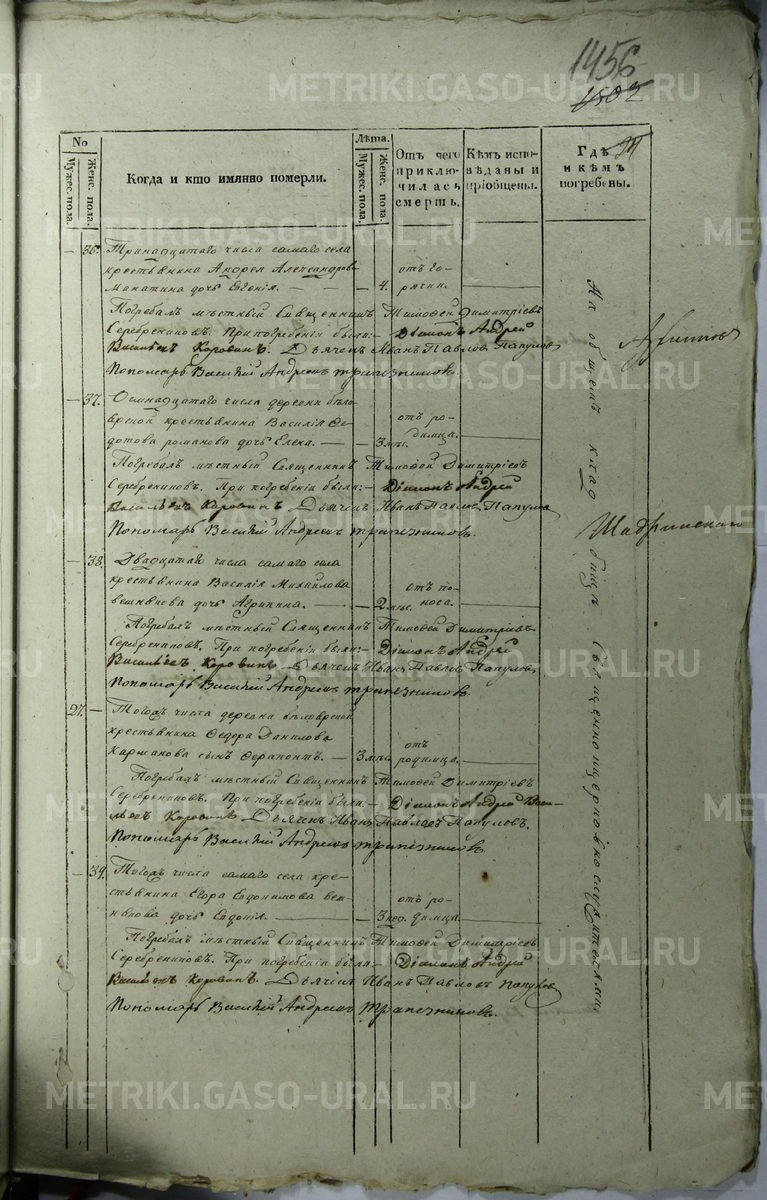 1456
1502
METRIKI.GASO-URAL.RU
No
Мужес. пола.
Женс. пола.
Когда и кто имянно померли.
Лѣта.
Мужес. пола.
Женс. пола.
Отъ чего приключилась смерть.
Кѣмъ исповѣданы и пріобщены.
Гдѣ и кѣмъ погребены.
36. Тринадцатаго числа самаго села
крестьянина Андрея Александрова
дочь Евгенія. — 4. отъ горячки.
Погребалъ мѣстный Священникъ Тимофей Димитріевъ
Серебрениковъ. При погребеніи были: Діаконъ Андрей
Васильевъ Коровинъ. Дьячекъ Иванъ Павловъ Папуловъ
Пономарь Василій Андреевъ Трапезниковъ.
37. Осмнадцатаго числа деревни
крестьянина Василія Ѳедотова Романова дочь Елена. — 3 мѣс. отъ родимца.
Погребалъ мѣстный Священникъ Тимофей Димитріевъ
Серебрениковъ. При погребеніи были: Діаконъ Андрей
Васильевъ Коровинъ Дьячекъ Иванъ Павловъ Папуловъ
Пономарь Василій Андреевъ Трапезниковъ.
38. Двадцатаго числа самаго села
крестьянина Василія Михайлова
дочь Агрипина. — 2 мѣс. отъ поноса.
Погребалъ мѣстный Священникъ Тимофей Димитріевъ
Серебрениковъ. При погребеніи были: Діаконъ Андрей
Васильевъ Коровинъ Дьячекъ Иванъ Павловъ Папуловъ
Пономарь Василій Андреевъ Трапезниковъ.
27. Тогожъ числа деревни
крестьянина Ѳедора Данилова
Карманова сынъ Ѳерапонтъ. — 3 мѣс. отъ родимца.
Погребалъ мѣстный Священникъ Тимофей Димитріевъ
Серебрениковъ. При погребеніи были: Діаконъ Андрей Васильевъ Коровинъ Дьячекъ Иванъ Павловъ Папуловъ.
Пономарь Василій Андреевъ Трапезниковъ.
39. Тогожъ числа самаго села крестьянина Егора Евдокимова
дочь Евдокія. — 3 нед. отъ родимца
Погребалъ мѣстный Священникъ Тимофей Димитріевъ
Серебрениковъ. При погребеніи были: Діаконъ Андрей
Васильевъ Коровинъ. Дьячекъ Иванъ Павловъ Папуловъ
Пономарь Василій Андреевъ Трапезниковъ.
На общемъ кладбищѣ Священноцерковнослужителями.
Шадринскаго